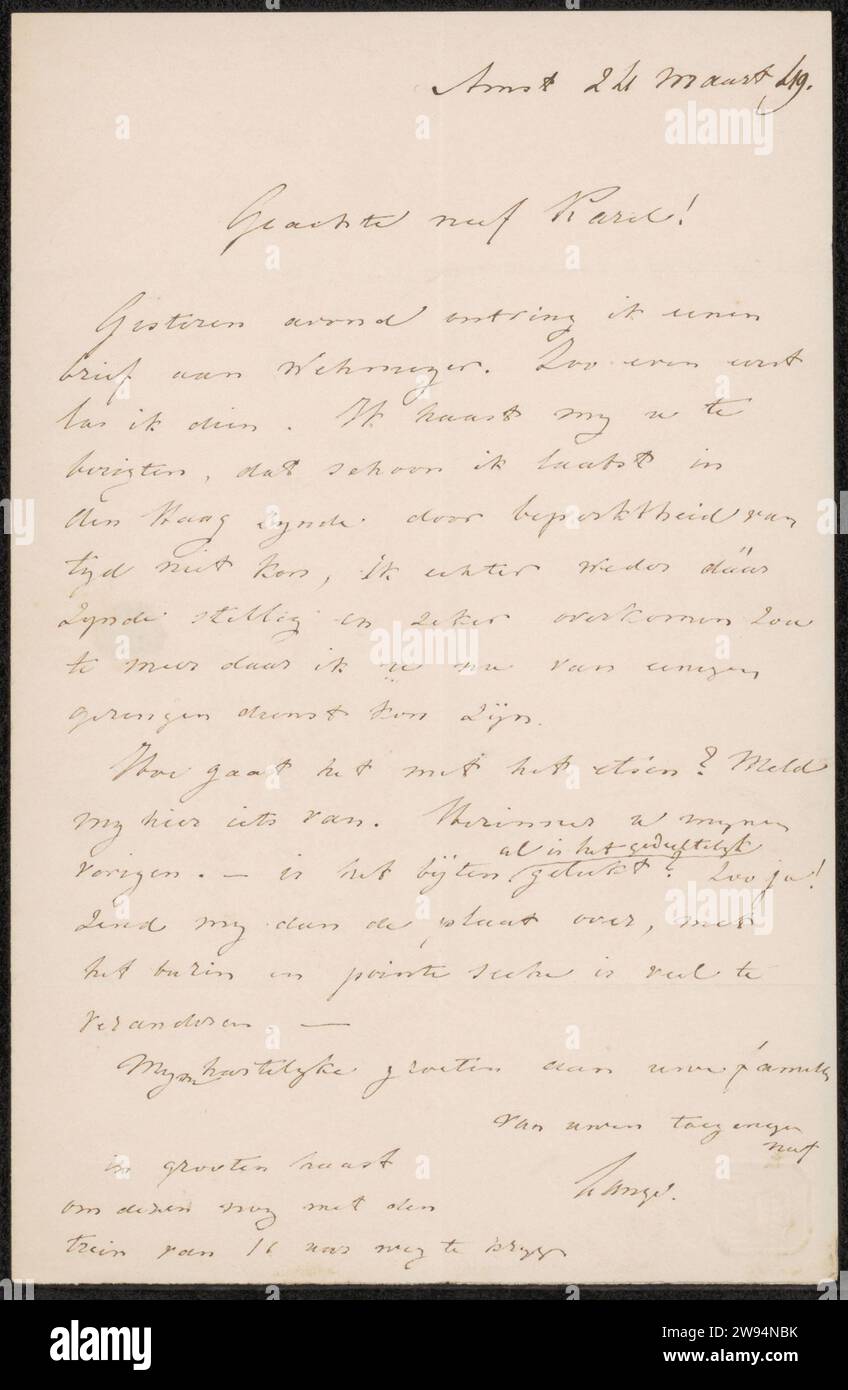 Amst 24 maart 49.
Geachte neef Karel!
Gisteren avond ontving ik eenen
brief aan Wehmeyer. Zoo even eerst
las ik dien. Ik haast my u te
berigten, dat schoon ik laatst in
den Haag zynde door beperktheid van
tyd niet kon, ik echter weder däär
zynde stellig en zeker overkomen zou
te meer daar ik u nu van eenigen
geringen dienst kon zijn.
Hoe gaat het met het etsen? Meld
my hier iets van. Herinner u mynen
al is het gedeeltelyk
vorigen. — is het bijten gelukt? Zoo ja!
Zend my dan de plaat over, met
het burin en pointe seche is veel te
veranderen —
Myn hartelyke groeten aan uwe familie
van uwen toegenegen
neef
in grooten haast
om dezen nog met den
trein van 11 uur weg te
alamy
Image ID: 2W94NBK
www.alamy.com